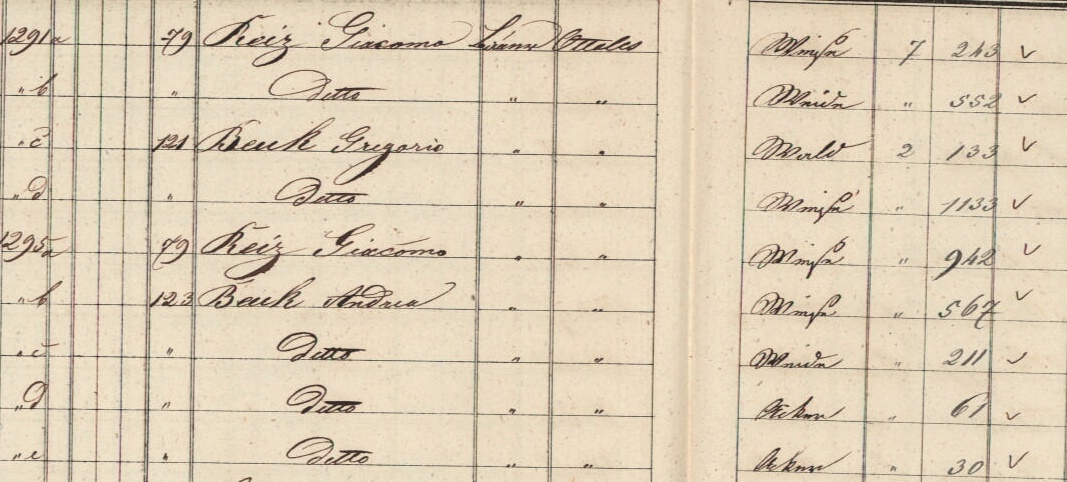 1291a 79 Keiz Giacomo Otteles Wiese 7 243 ✓
„ b „ Detto „ „ Weide „ 552 ✓
„ c 121 Beuk Gregorio „ „ Wald 2 133 ✓
„ d „ Detto „ „ Wiese „ 1133 ✓
1295a 79 Keiz Giacomo „ „ Wiese „ 942 ✓
„ b 123 Beuk Andrea „ „ Wiese „ 567 ✓
„ c „ Detto „ „ Weide „ 211 ✓
„ d „ Detto „ „ Acker „ 61 ✓
„ e „ Detto „ „ Acker „ 30 ✓